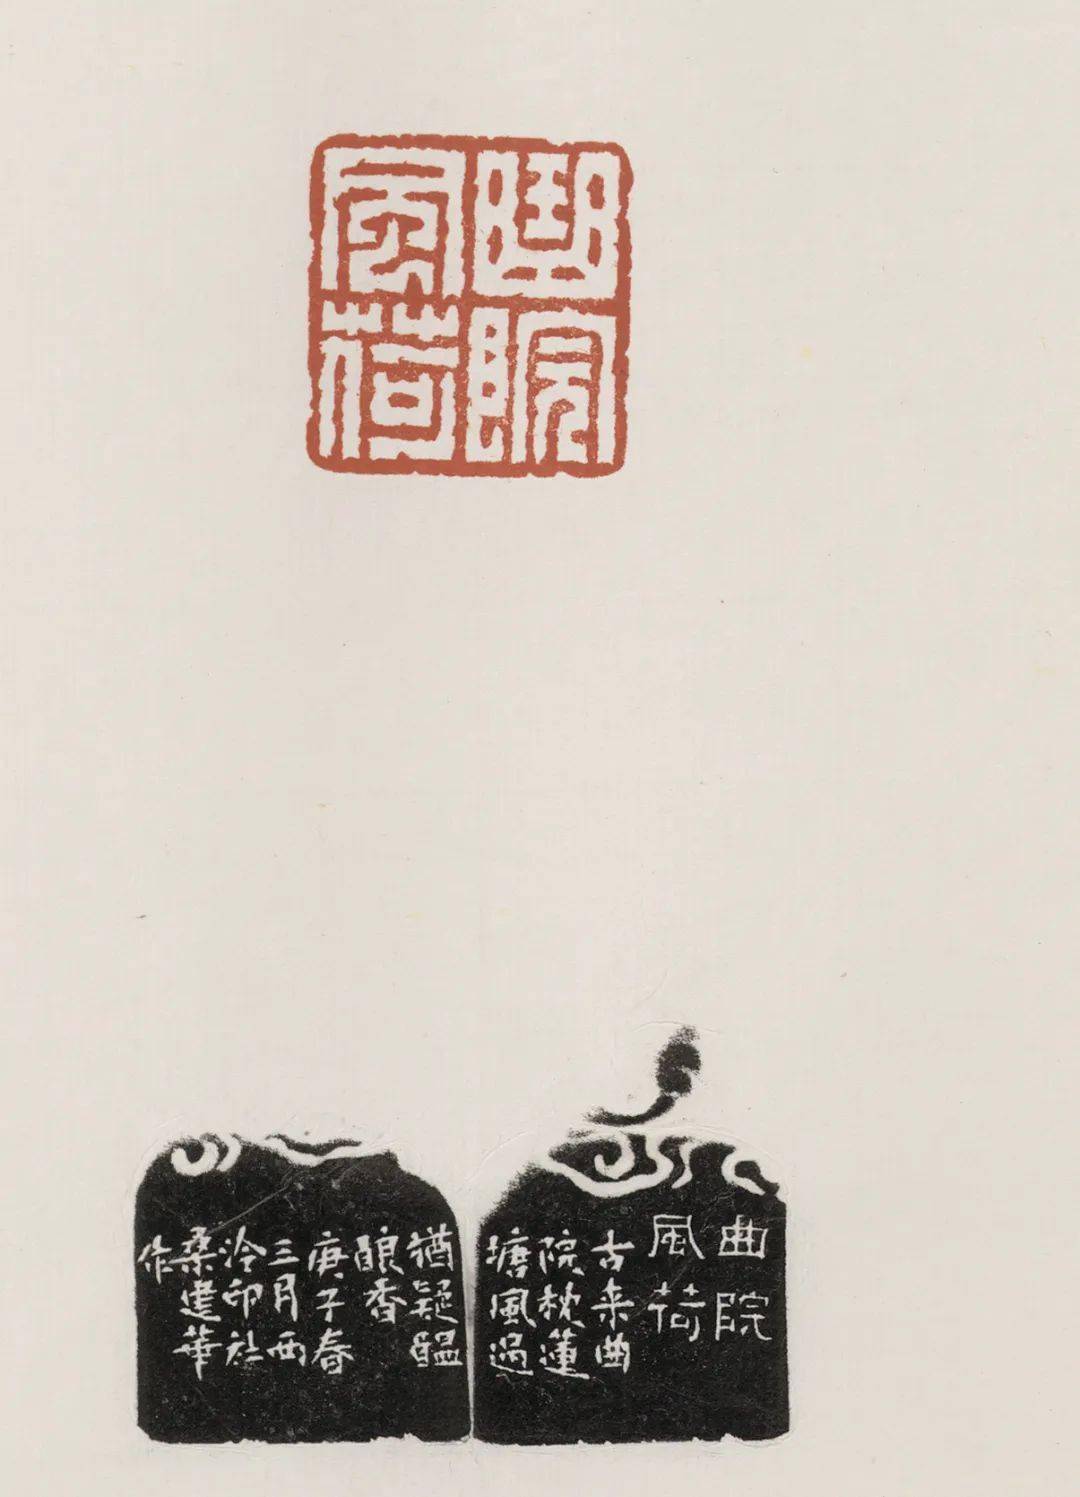 曲院
風荷
曲院
風荷
古来曲
院枕蓮
塘風過
猶疑醞
釀香
庚子春
三月西
泠印社
桑建華
作